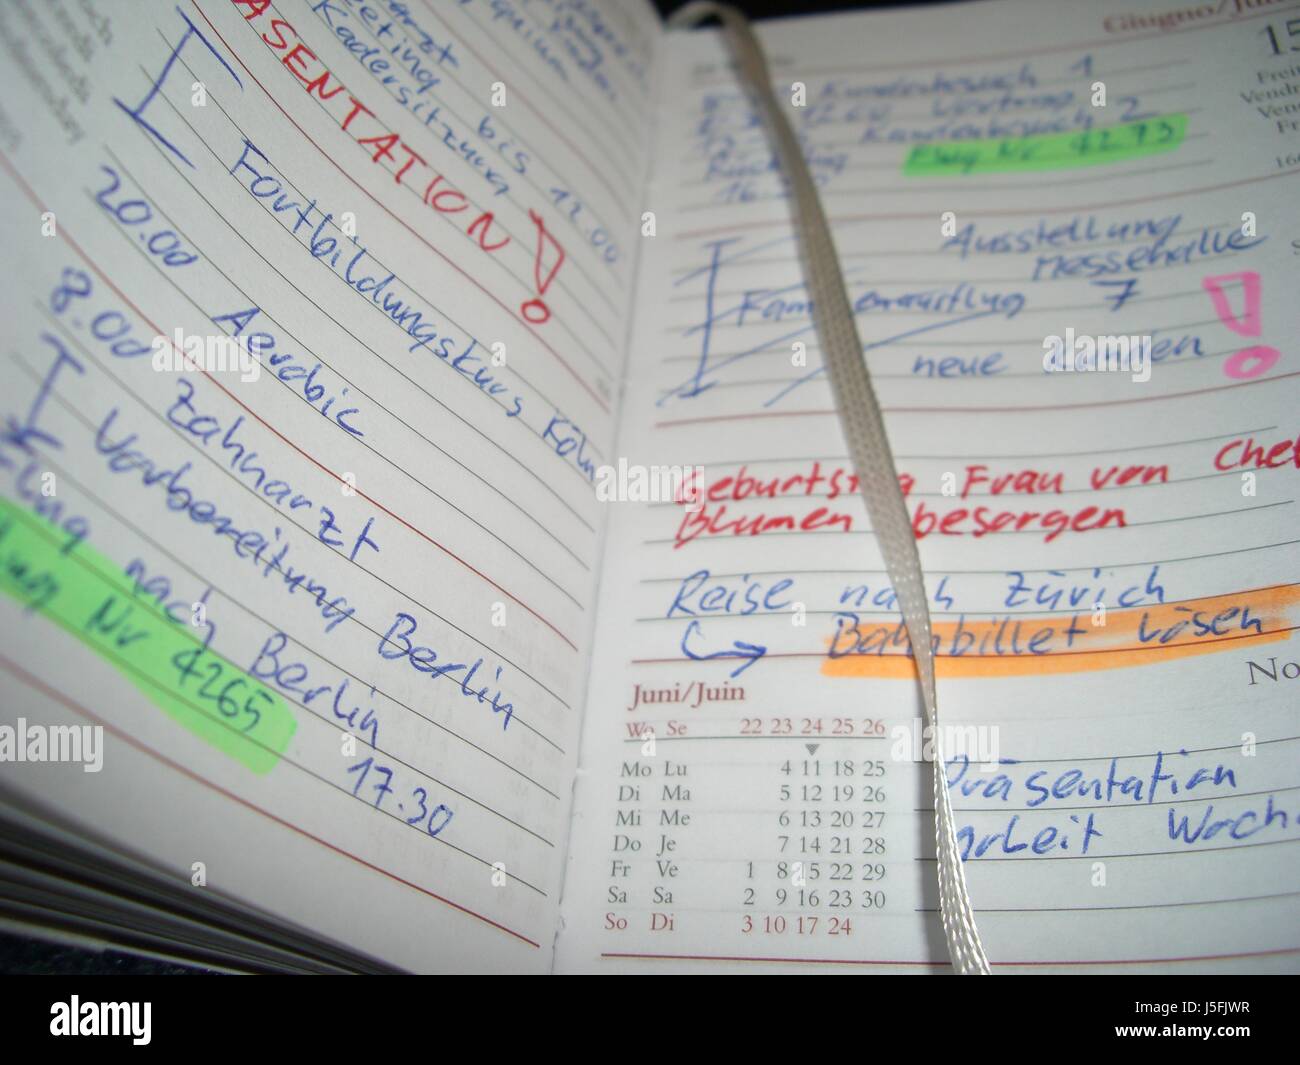 ASENTATION!
bis 12.00
Kadersitzung
Fortbildungskurs Köln
20.00 Aerobic
8.00 Zahnarzt
Vorbereitung Berlin
Flug nach Berlin 17.30
Flug Nr 4265
Giugno/
15
Kundenbesuch 1
12.00 Vortrag
Kundenbesuch 2
Flug Nr 4273
Ausstellung
Messehalle 7
Familienausflug
neue Kunden !
Geburtstag Frau von Chef
Blumen besorgen
Reise nach Zürich
Bahnbillet lösen
Juni/Juin
Wo Se 22 23 24 25 26
Mo Lu 4 11 18 25
Di Ma 5 12 19 26
Mi Me 6 13 20 27
Do Je 7 14 21 28
Fr Ve 1 8 15 22 29
Sa Sa 2 9 16 23 30
So Di 3 10 17 24
No
Präsentation
arbeit Woch
alamy
Image ID: J5FJWR
www.alamy.com